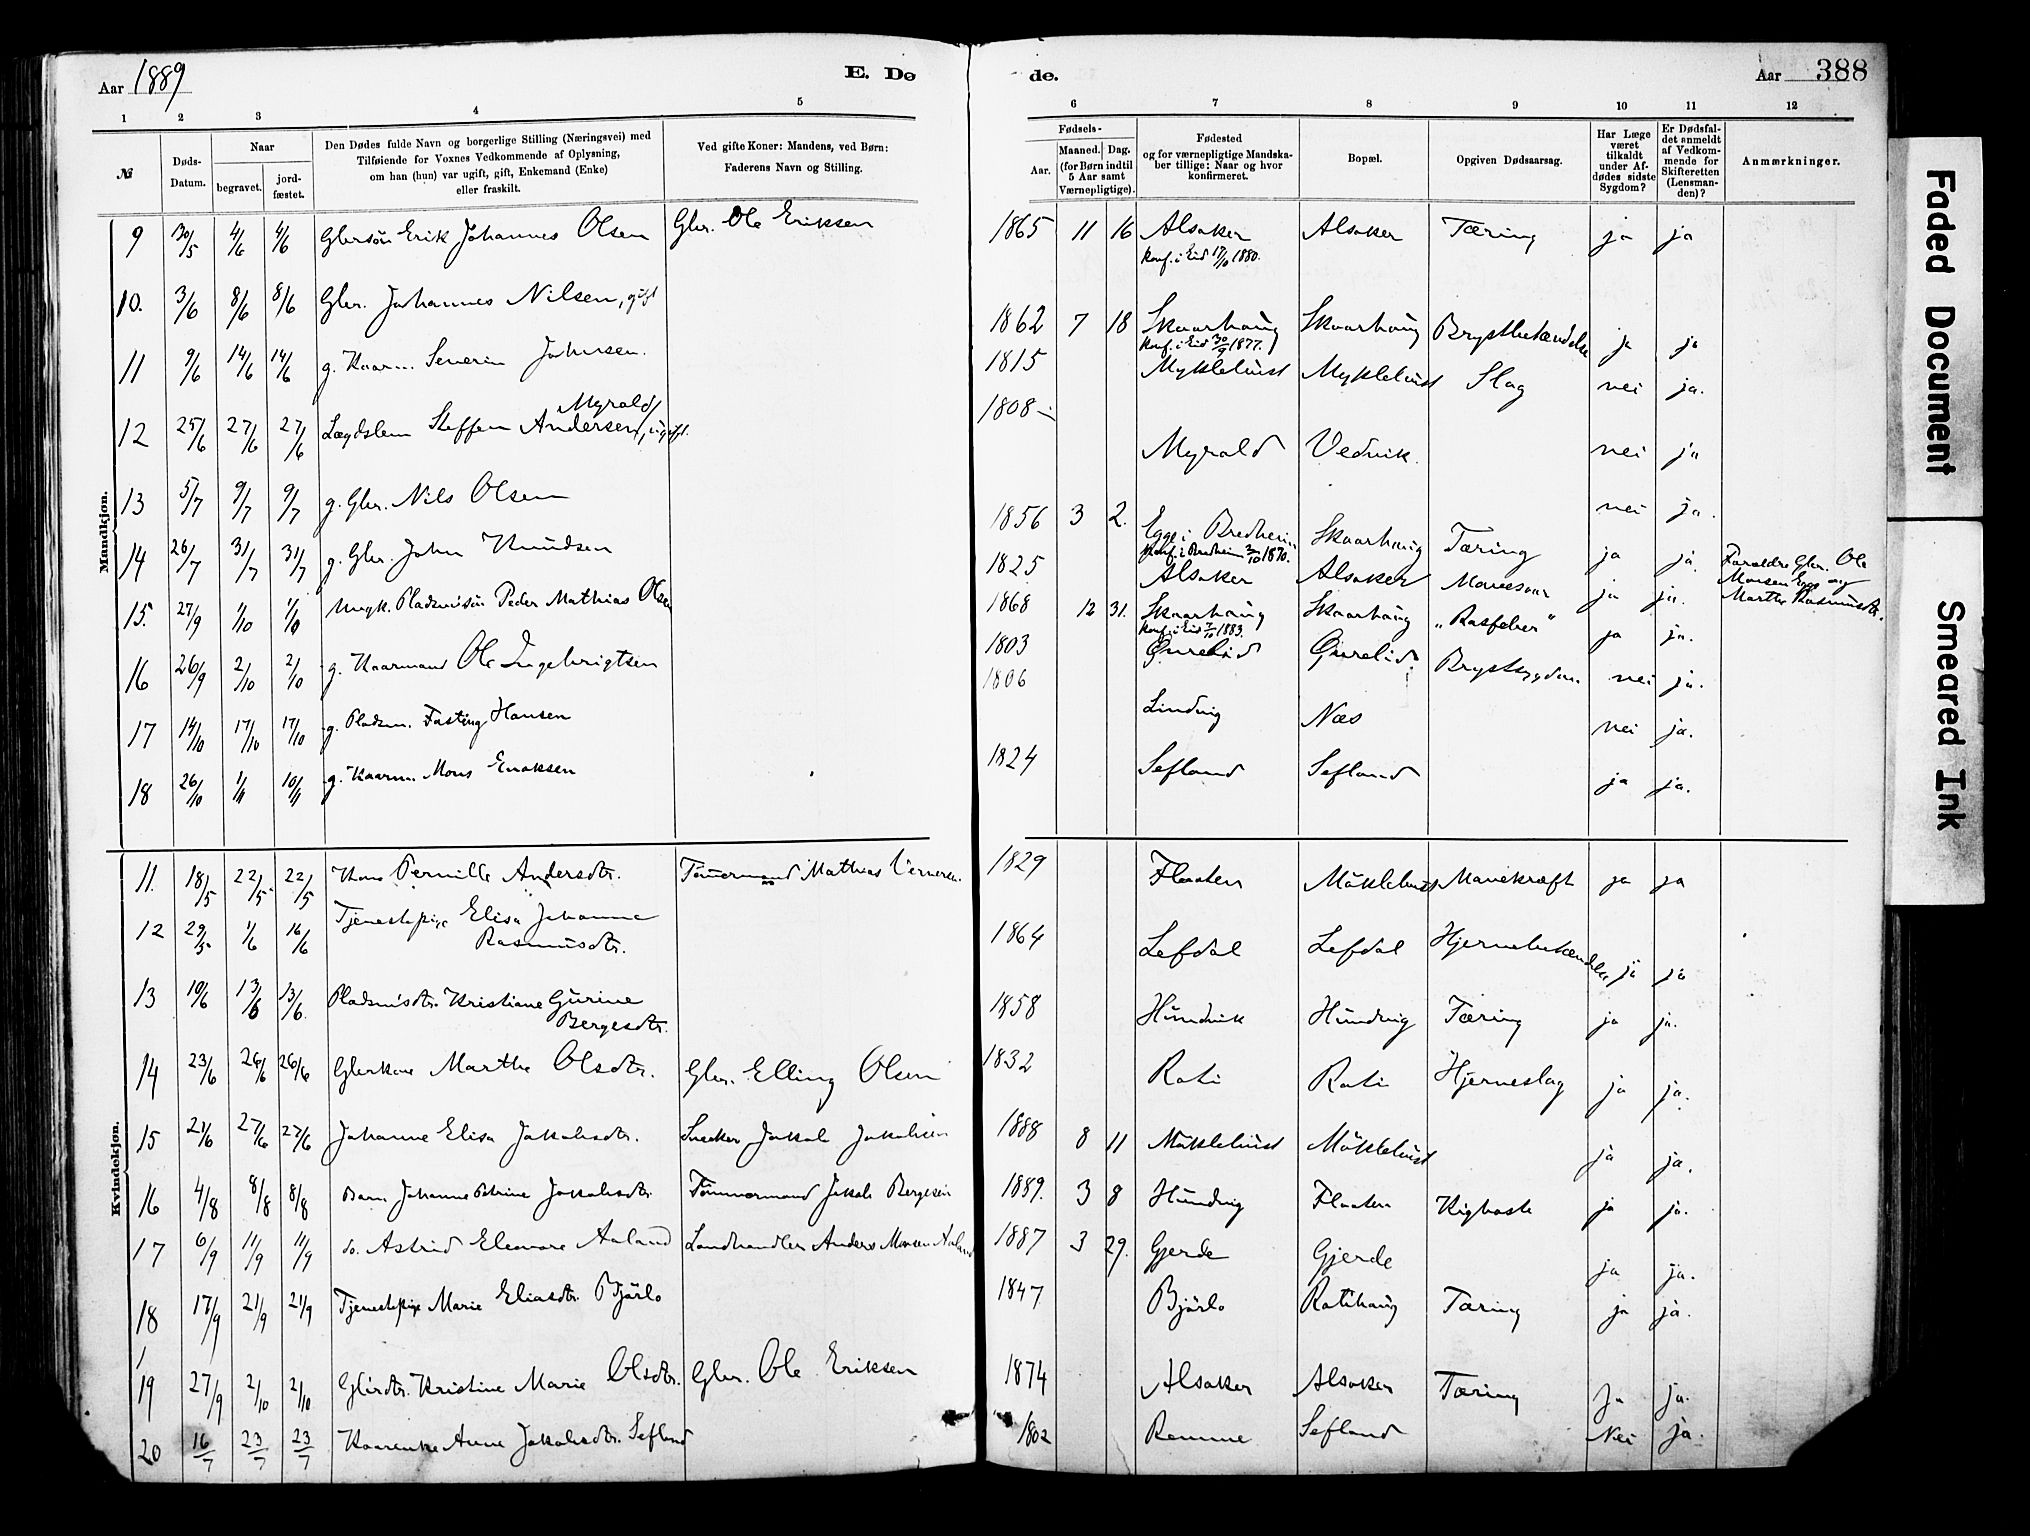 Aar 1889
E. Dø
de.
Aar
388
1 2 3 4 5 6 7 8 9 10 11 12
№
Døds-Datum.
Naar
begravet.
jord-fæstet.
Den Dødes fulde Navn og borgerlige Stilling (Næringsvei) med
Tilføiende for Voxnes Vedkommende af Oplysning,
om han (hun) var ugift, gift, Enkemand (Enke)
eller fraskilt.
Ved gifte Koner: Mandens, ved Børn:
Faderens Navn og Stilling.
Fødsels-
Aar.
Maaned. Dag.
(for Børn indtil
5 Aar samt
Værnepligtige).
Fødested
og for værnepligtige Mandska-
ber tillige: Naar og hvor
konfirmeret.
Bopæl.
Opgiven Dødsaarsag.
Har Læge
været
tilkaldt
under Af-
dødes sidste
Sygdom?
Er Dødsfal-
det anmeldt
af Vedkom-
mende for
Skifteretten
(Lensman-
den)?
Anmærkninger.
Mandkjøn.
9 30/5 4/6 4/6 Gbrsøn Erik Johannes Olsen Gbr. Ole Eriksen 1865 11 16 Alsaker Alsaker Tæring ja ja
konf. i Eid 17/10 1880.
10. 3/6 8/6 8/6 Gbr. Johannes Nilsen, gift 1862 7 18 Skaarhaug Skaarhaug Brystbetændelse ja ja
konf. i Eid 30/9 1877.
11 9/6 14/6 14/6 g. Kaarm. Severin Johnsen. 1815 Myklebust Myklebust Slag nei ja.
Myrold
12 25/6 27/6 27/6 Lægdslem Steffen Andersen, ugift. 1808 Myrold Vedvik. nei ja
13 5/7 9/7 9/7 g. Gbr. Nils Olsen 1856 3 2. Egge i Bredheim Skaarhaug Tæring nei ja.
konf. i Bredheim 2/10 1870.
14 26/7 31/7 31/7 g. Gbr. John Knudsen 1825 Alsaker Alsaker Mavesaar ja ja. Foreldre Gbr. Ole
Monsen Egge og
Marthe Rasmusdtr.
15. 27/9 1/10 1/10 Ungk. Pladsm'søn Peder Mathias Olsen 1868 12 31. Skaarhaug Skaarhaug ja ja.
konf. i Eid 7/10 1883.
16 26/9 2/10 2/10 g. Kaarmand Ole Ingebrigtsen 1803 ja ja.
17 14/10 17/10 17/10 g. Pladsm. Fasting Hansen 1806 Lindvig Næs nei ja.
18 26/10 1/11 10/11 g. Kaarm. Mons Enoksen 1824 Sefland Sefland ja ja.
Kvindekjøn.
11. 18/5 22/5 22/5 Kone Pernille Andersdtr. Tømmermand Mathias 1829 Flaaten Myklebust Mavekræft ja ja
12 29/5 1/6 16/6 Tjenestepige Elisa Johanne
Rasmusdtr. 1864 Lefdal Lefdal Hjernebetændelse ja ja
13 10/6 13/6 13/6. Pladsm'sdtr. Kristiane Gurine
Bergesdtr. 1858 Hundvik Hundvig Tæring ja ja.
14 23/6 26/6 26/6 Gbrkone Marthe Olsdtr. Gbr. Elling Olsen 1832 Roti Roti Hjerneslag ja ja.
15 21/6 27/6 27/6 Johanne Elisa Jakobsdtr. Snedker Jakob Jakobsen 1888 8 11 Myklebust Myklebust ja ja.
16 4/8 8/8 8/8 Barn Johanne Petrine Jakobsdtr. Tømmermand Jakob Bergesen 1889. 3 8 Hundvig Flaaten Kighoste ja ja.
17 6/9 11/9 11/9 do. Astrid Eleonore Aaland Landhandler Anders Monsen Aaland 1887 3 29. Gjerde Gjerde ja ja.
18 17/9 21/9 21/9 Tjenestepige Marie Eliasdtr. Bjørlo 1847 Bjørlo Rotihaug Tæring ja ja.
19 27/9 2/10 2/10 Gbrdtr. Kristine Marie Olsdtr. Gbr. Ole Eriksen 1874 Alsaker Alsaker Tæring ja ja.
20 16/7 23/7 23/7 Kaarenke Anne Jakobsdtr. Sefland 1802 Remme Sefland Nei ja.
Faded Document
Smeared Ink